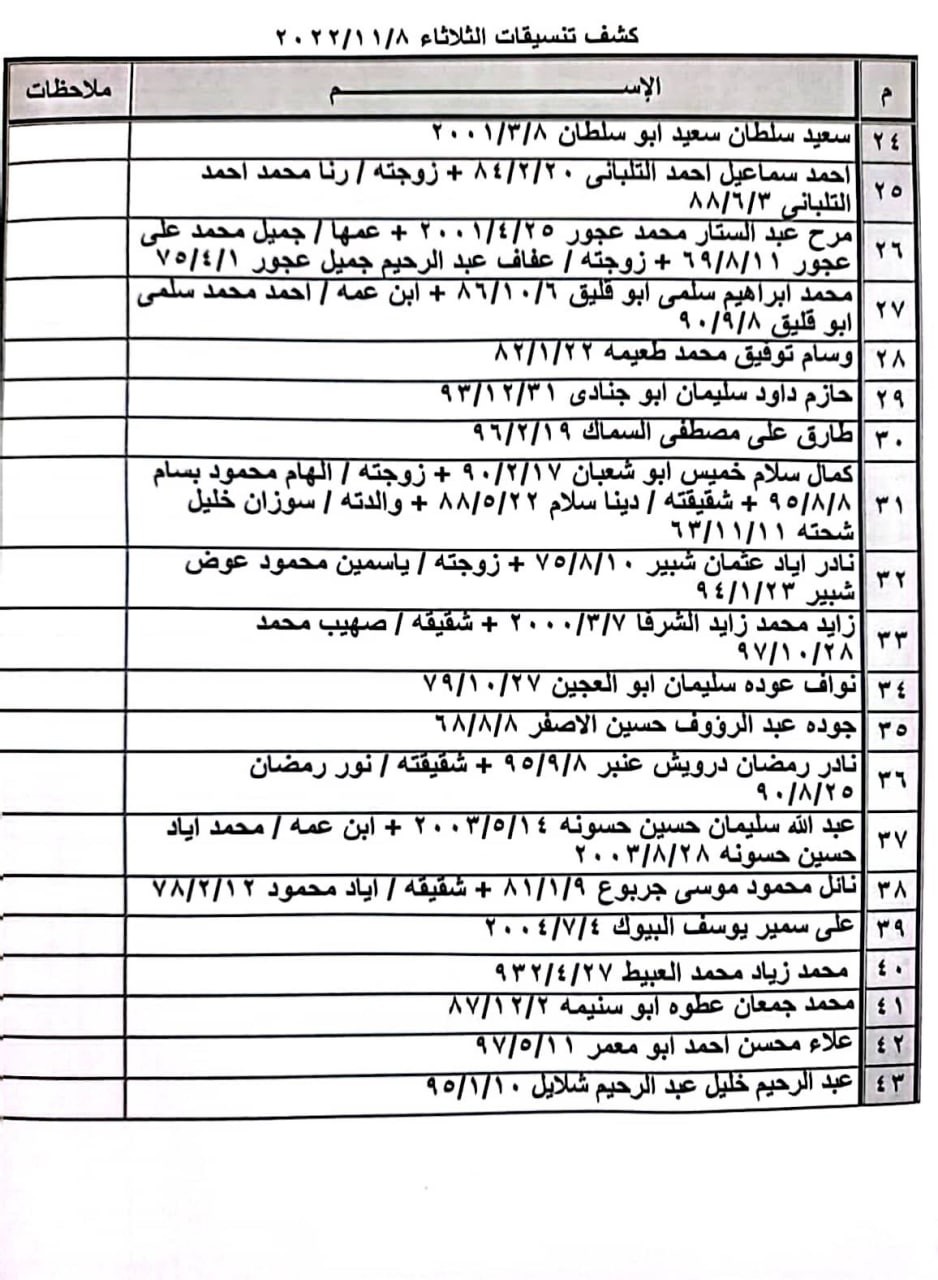 كشف تنسيقات الثلاثاء ٢٠٢٢/١١/٨
م الإســــــــم ملاحظات
٢٤ سعيد سلطان سعيد ابو سلطان ٢٠٠١/٣/٨
٢٥ احمد سماعيل احمد التلبانى ٨٤/٢/٢٠ + زوجته / رنا محمد احمد
التلبانى ٨٨/٦/٣
٢٦ مرح عبد الستار محمد عجور ٢٠٠١/٤/٢٥ + عمها / جميل محمد على
عجور ٦٩/٨/١١ + زوجته / عفاف عبد الرحيم جميل عجور ٧٥/٤/١
٢٧ محمد ابراهيم سلمى ابو قليق ٨٦/١٠/٦ + ابن عمه / احمد محمد سلمى
ابو قليق ٩٠/٩/٨
٢٨ وسام توفيق محمد طعيمه ٨٢/١/٢٢
٢٩ حازم داود سليمان ابو جنادى ٩٣/١٢/٣١
٣٠ طارق على مصطفى السماك ٩٦/٢/١٩
٣١ كمال سلام خميس ابو شعبان ٩٠/٢/١٧ + زوجته / الهام محمود بسام
٩٥/٨/٨ + شقيقته / دينا سلام ٨٨/٥/٢٢ + والدته / سوزان خليل
شحته ٦٣/١١/١١
٣٢ نادر اياد عثمان شبير ٧٥/٨/١٠ + زوجته / ياسمين محمود عوض
شبير ٩٤/١/٢٣
٣٣ زايد محمد زايد الشرفا ٢٠٠٠/٣/٧ + شقيقه / صهيب محمد
٩٧/١٠/٢٨
٣٤ نواف عوده سليمان ابو العجين ٧٩/١٠/٢٧
٣٥ جوده عبد الرؤوف حسين الاصفر ٦٨/٨/٨
٣٦ نادر رمضان درويش عنبر ٩٥/٩/٨ + شقيقته / نور رمضان
٩٠/٨/٢٥
٣٧ عبد الله سليمان حسين حسونه ٢٠٠٣/٥/١٤ + ابن عمه / محمد اياد
حسين حسونه ٢٠٠٣/٨/٢٨
٣٨ نائل محمود موسى جربوع ٨١/١/٩ + شقيقه / اياد محمود ٧٨/٢/١٢
٣٩ على سمير يوسف البيوك ٢٠٠٤/٧/٤
٤٠ محمد زياد محمد العبيط ٩٣٢/٤/٢٧
٤١ محمد جمعان عطوه ابو سنيمه ٨٧/١٢/٢
٤٢ علاء محسن احمد ابو معمر ٩٧/٥/١١
٤٣ عبد الرحيم خليل عبد الرحيم شلايل ٩٥/١/١٠